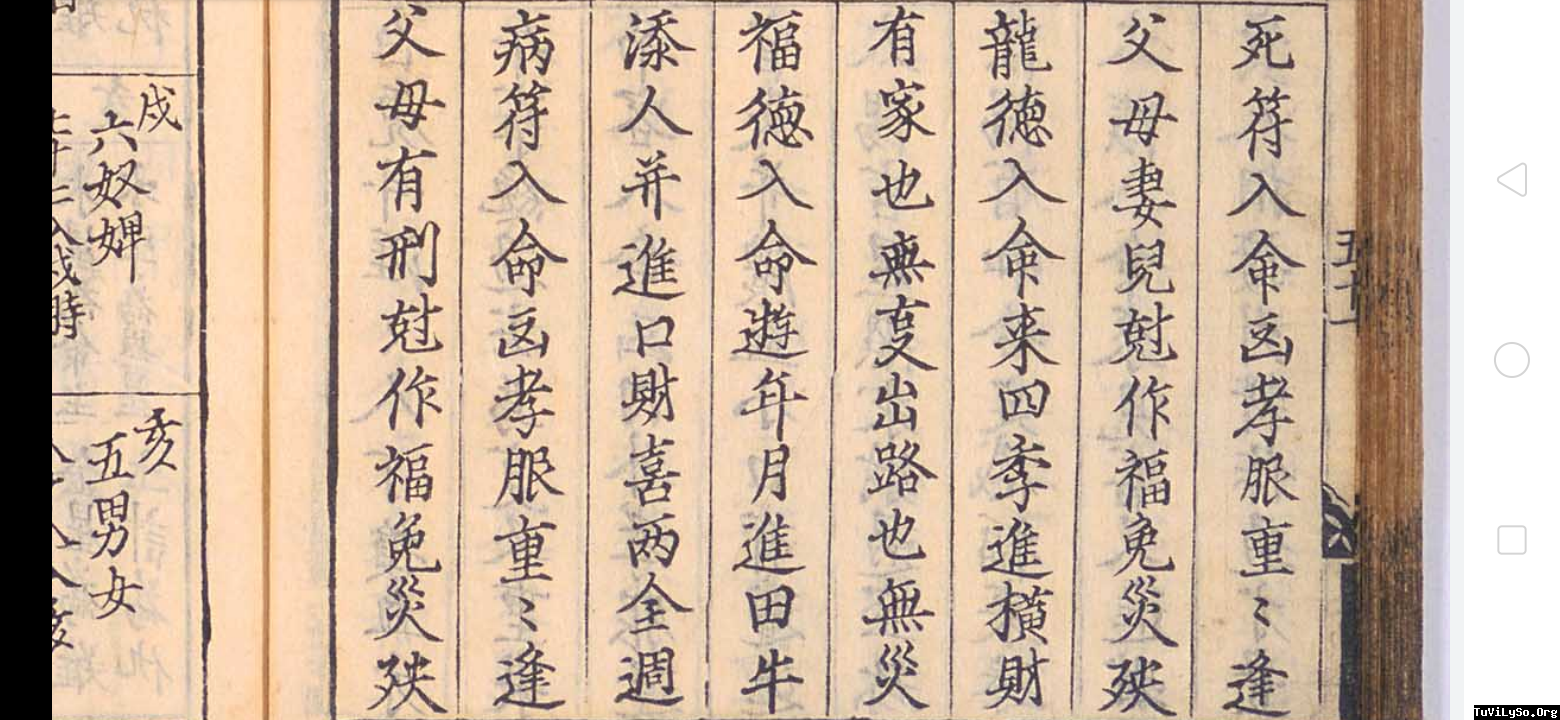 死符入命凶孝服重〻逢
父母妻兒尅作福免災殃
龍德入命来四季進橫財
有家也無㐫出路也無災
福德入命遊年月進田牛
添人并進口財喜两全週
病符入命凶孝服重〻逢
父母有刑尅作福免災殃
戌
六奴婢
亥
五男女
五十一
TuViLySo.Org